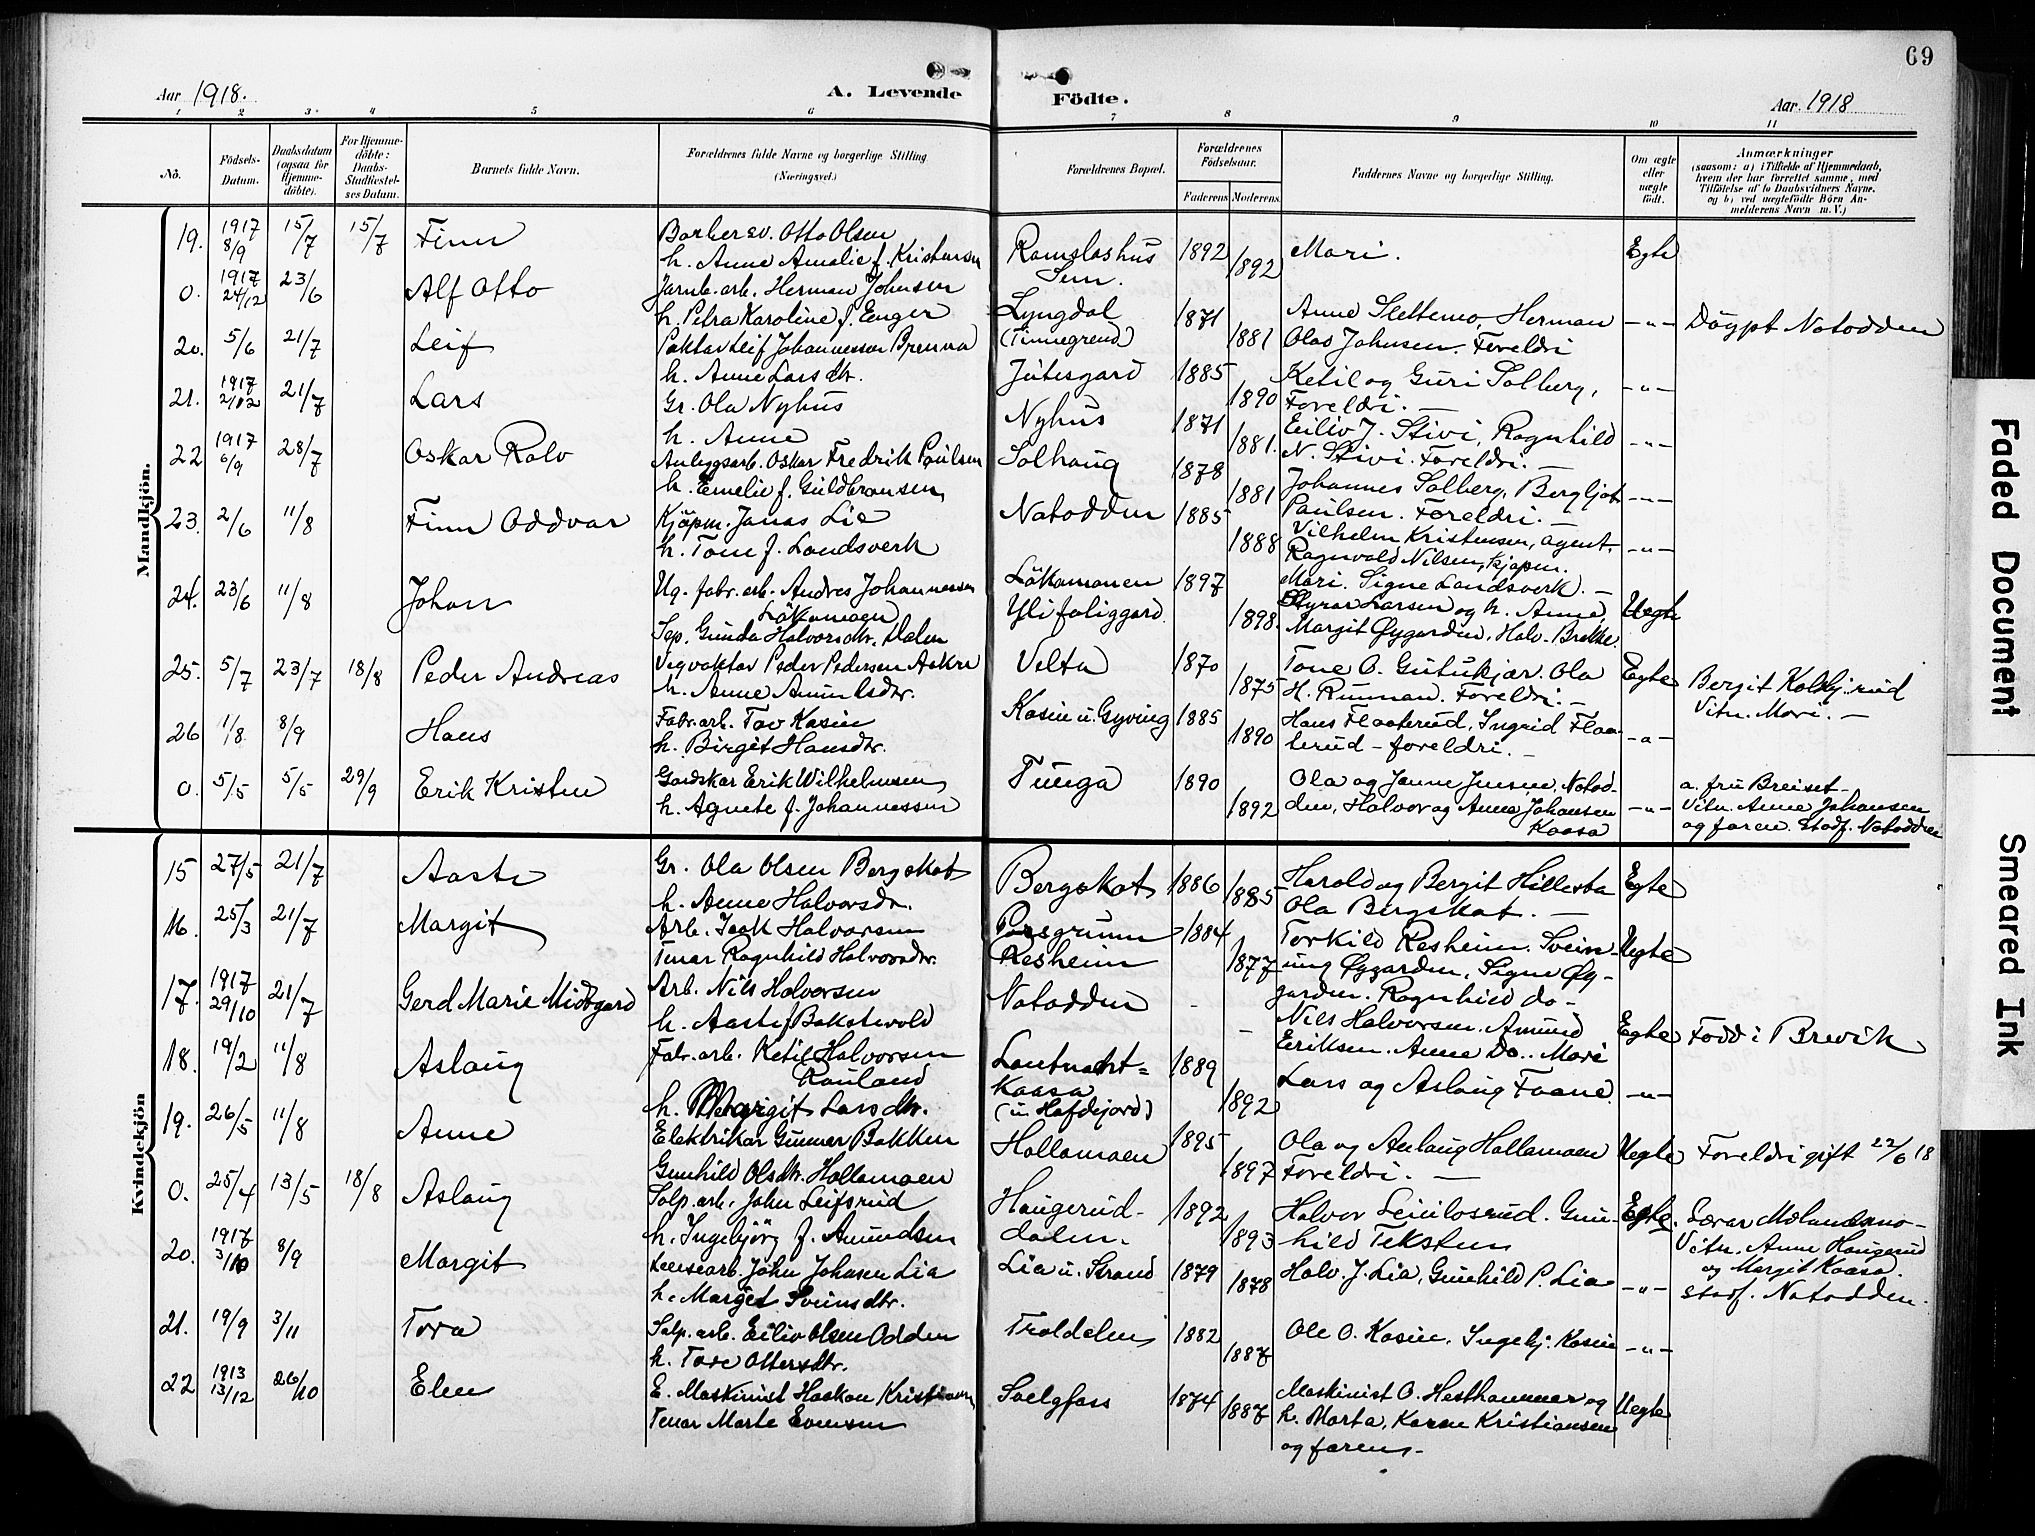 69
Aar 1918.
A. Levende
Födte.
Aar 1918
1 2 3 4 5 6 7 8 9 10 11
No.
Födsels-
Datum.
Daabsdatum
(ogsaa for
Hjemme-
döbte).
For Hjemme-
döbte:
Daabs-
Stadfæstel-
ses Datum.
Barnets fulde Navn.
Forældrenes fulde Navne og borgerlige Stilling
(Næringsvei.)
Forældrenes Bopæl.
Forældrenes
Födselsaar.
Faderens
Moderens
Faddernes Navne og borgerlige Stilling.
Om ægte
eller
uægte
födt.
Anmærkninger
(saasom: a) i Tilfælde af Hjemmedaab,
hvem der har forrettet samme, med
Tilföielse af to Daabsvidners Navne,
og b) ved uægtefödte Börn An-
melderens Navn m. V.)
Mandkjön.
19. 1917 8/9 15/7 15/7 Finn
Barbersv. Otto Olsen
h. Anne Amalie f. Kristensen
Ramslashus
Sem.
1892 1892 Mari. Egte
0. 1917 24/12 23/6 Alf Otto
Jarnb. arb. Herman Johnsen
h. Petra Karoline f. Enger
Lyngdal
(Tinnegrend)
1871 1881
Anne Slettemo, Herman
Olas Johnsen. Foreldri
-"- Döypt Notodden
20. 5/6 21/7 Leif
Paktar Leif Johannessen Brenna
h. Anne Larsdtr.
Jutesgard 1885 1890
Ketil og Guri Solberg,
Foreldri. -
-"-
21. 1917 2/12 21/7 Lars
Gr. Ola Nyhus
h. Anne
Nyhus 1871 1881.
Eiliv J. Stivi, Ragnhild
N. Stivi. Foreldri. -
-"-
22 1917 6/9 28/7 Oskar Ralv
Anleggsarb. Oskar Fredrik Paulsen
h. Emelie f. Guldbransen
Solhaug 1878 1881
Johannes Solberg, Bergljot
Paulsen. Foreldri. -
-"-
23. 2/6 11/8 Finn Oddvar
Kjöpm. Jonas Lie
h. Tone f. Landsverk
Notodden 1885 1888
Vilhelm Kristensen, agent.
Ragnvald Nilsen, kjöpm.
Mari. Signe Landsverk. -
-"-
24. 23/6 11/8 Johan
Ug. fabr. arb. Andres Johannessen
Lökamoen
Sep. Gunda Halvorsdtr. Dalen
Lökamoen
Ylifoliggard
1897 1898.
Styrar Larsen og h. Anne,
Margit Øygarden, Halv. Brekke.
Uegte
25. 5/7 23/7 18/8 Peder Andreas
Vegvaktar Peder Pedersen Aakre
h. Anne Amundsdtr.
Velta 1870 1875
Tone O. Gutukjær. Ola
H. Runnan. Foreldri. -
Egte
Bergit Kolbj.rud
Vitn. Mori. -
26 1/8 8/9 Hans
Fabr. arb. Tov Kasin
h. Birgit Hansdtr.
Kasin u. Gyving 1885 1890
Hans Flaaterud, Ingrid Flaa-
terud - foreldri. -
-"-
0. 5/5 5/5 29/9 Erik Kristen
Gardskar Erik Wilhelmsen
h. Agnete f. Johannessen
Tunga 1890 1892
Ola og Janne Jensen, Notod-
den, Halvor og Anne Johansen
Kaasa
-"-
a. fru Breiset-
Vitn. Anne Johansen
og faren. Stadf. Notodden
Kvindekjön
15 27/5 21/7 Aaste
Gr. Ola Olsen Bergskat
h. Anne Halvorsdr.
Bergskat 1886 1885
Harald og Bergit Hillestad
Ola Bergskat. -
Egte
16. 25/3 21/7 Margit
Arb. Isak Halvorsen
Tenar Ragnhild Halvorsdtr.
Porsgrunn
Resheim
1884 1877
Torkild Resheim. Svein-
ung Øygarden, Signe Øy-
garden. Ragnhild do-
Uegte
17. 1917 29/10 21/7 Gerd Marie Midtgard
Arb. Nils Halvorsen
h. Aaste f. Bakstevold
Notodden - -
Nils Halvorsen. Amund
Eriksen. Anne Do.. Mari
Egte Fødd i Brevik
18. 19/2 11/8 Aslaug
Fabr. arb. Ketil Halvorsen
Rauland
h. Margit Larsdtr.
Kaasa
(u Hafdejord)
1889 1892
Lars og Aslaug Faane.
-"-
19. 26/5 11/8 Anne
Elektrikar Gunnar Bakken
Gunhild Olsdtr. Hollamoen
Hollamoen 1895 1897
Ola og Anlaug Hollamoen
Foreldri. -
Uegte Foreldri gift 22/6 18
0. 25/4 13/5 18/8 Aslaug
Salp. arb. John Leifsrud
h. Ingebjörg f. Amundsen
Haugerud-
dalen.
1892 1893
Halvor Leiulvsrud. Gun-
hild Teksten
Egte.
Lærar Molandsmo-
Vitn. Anne Haugerud
og Margit Kaasa.
stadf. Notodden.
20. 1917 3/10 8/9 Margit
Leisearb. John Johnsen Lia
h. Margit Sveinsdtr.
Lia u. Strand 1879 1878
Halv. J. Lia, Gunhild P. Lia
-"-
21. 19/9 3/11 Tora
Salp. arb. Eiliv Olsen Odden
h. Tore Ottersdtr.
Troldelni 1882 1887
Ole O. Kasin. Ingebj. Kasin
-"-
22 1913 13/12 26/10 Elen
E. Maskinist Haakon Kristiansen
Tenar Marte Evensen
Svelgfoss 1874 1887
Maskinist O. Hesthammer og
h. Marta, Karen Kristiansen
og faren. -
Uegte
Faded Document
Smeared Ink